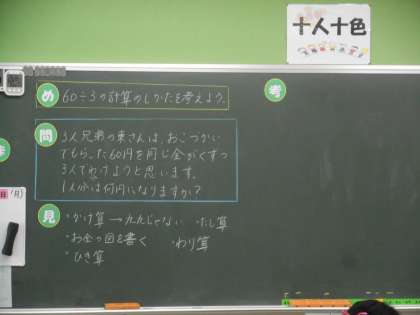 十人十色
め
60÷3の計算のしかたを考えよう。
考
問
3人兄弟の東さんは、おこづかい
でもらった60円を同じ金がくずつ
3人でわけようと思います。
1人分は何円になりますか?
見
・かけ算→九九じゃない ・たし算
・お金の図を書く ・わり算
・ひき算